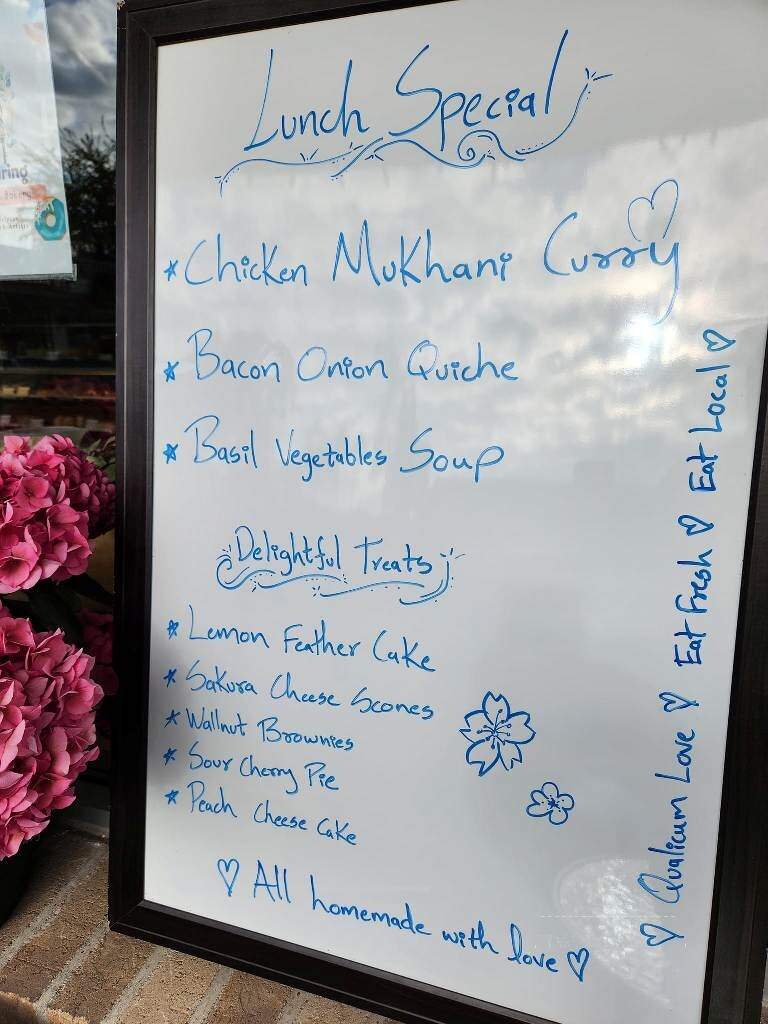 Lunch Special
* Chicken Mukhani Curry
* Bacon Onion Quiche
* Basil Vegetables Soup
Delightful Treats
* Lemon Feather Cake
* Sakura Cheese Scones
* Wallnut Brownies
* Sour Cherry Pie
* Peach Cheese Cake
♡ All homemade with love ♡
♡ Qualicum Love ♡ Eat Fresh ♡ Eat Local ♡
ring